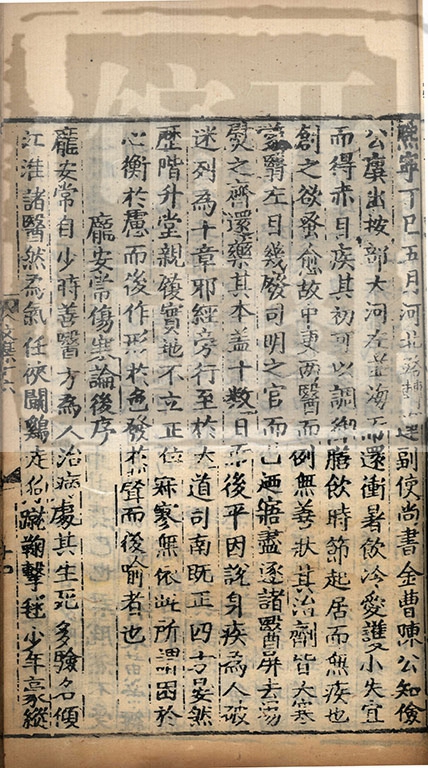 熙寧丁巳五月河北路轉運副使尚書金曹陳公知儉
公廩出按部大河左並海而還衝暑飲冷愛護小失宜
而得赤目疾其初可以調御膳飲時節起居而無疾也
創之欲蚤愈故中更兩醫而例無善狀其治劑皆大寒
左目幾廢司明之官而已廼寤盡逐諸醫屏去湯
熨之齊還藥其本盖十數日而後平因說身疾為人破
迷列為十章邪經旁行至於大道司南既正四方晏然
歷階升堂親履實地不立正位寂寥無依此所謂困於
心衡於慮而後作形於色發於聲而後喻者也
龐安常傷寒論後序
龐安常自少時善醫方為人治病處其生死多驗名傾
江淮諸醫然為氣任俠鬪鷄走狗蹴鞠擊毬少年豪縱